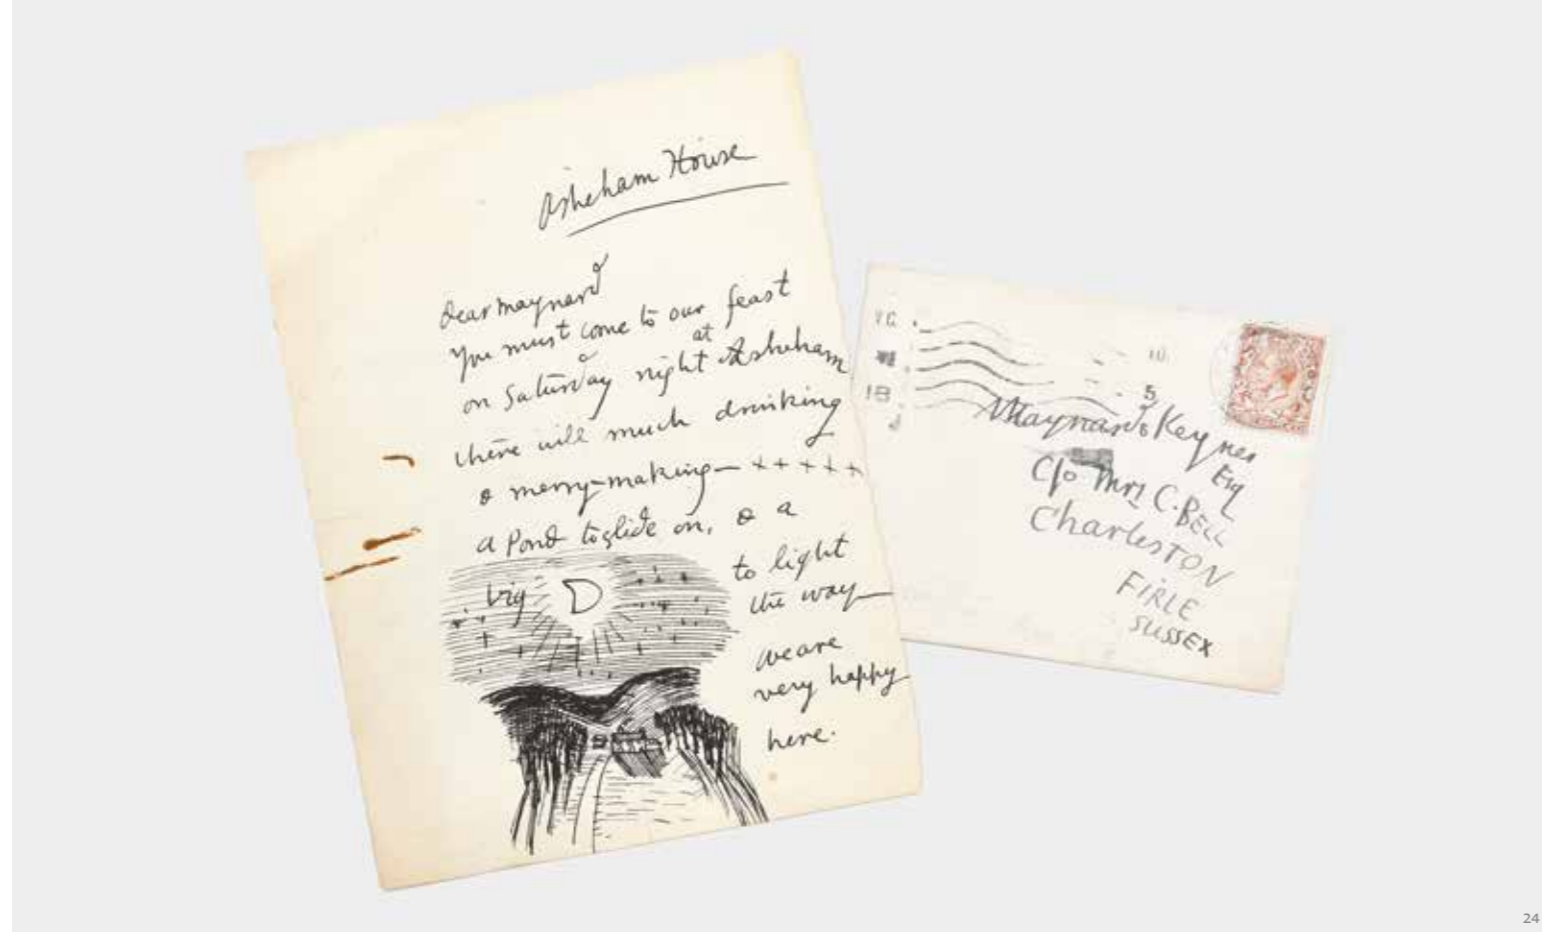 Asheham House
dear maynard
you must come to our feast
on Saturday night at Asheham
there will much drinking
& merry-making — + + + + +
a Pond to glide on, & a
big
to light
the way—
we are
very happy
here.
10.
5
Maynard Keynes
Esq
C/o Mrs C. BELL
CharlesTON
FIRLE
SUSSEX
24